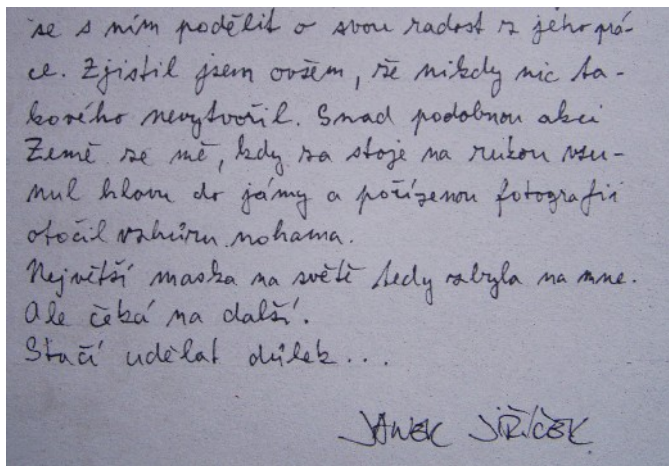 se s ním podělit o svou radost z jeho prá-
ce. Zjistil jsem ovšem, že nikdy nic ta-
kového nevytvořil. Snad podobnou akci
Země ze mě, kdy za stoje na rukou vsu-
nul hlavu do jámy a pořízenou fotografii
otočil vzhůru nohama.
Největší maska na světě tedy zbyla na mne.
Ale čeká na další.
Stačí udělat důlek...
JANEK JIŘÍČEK